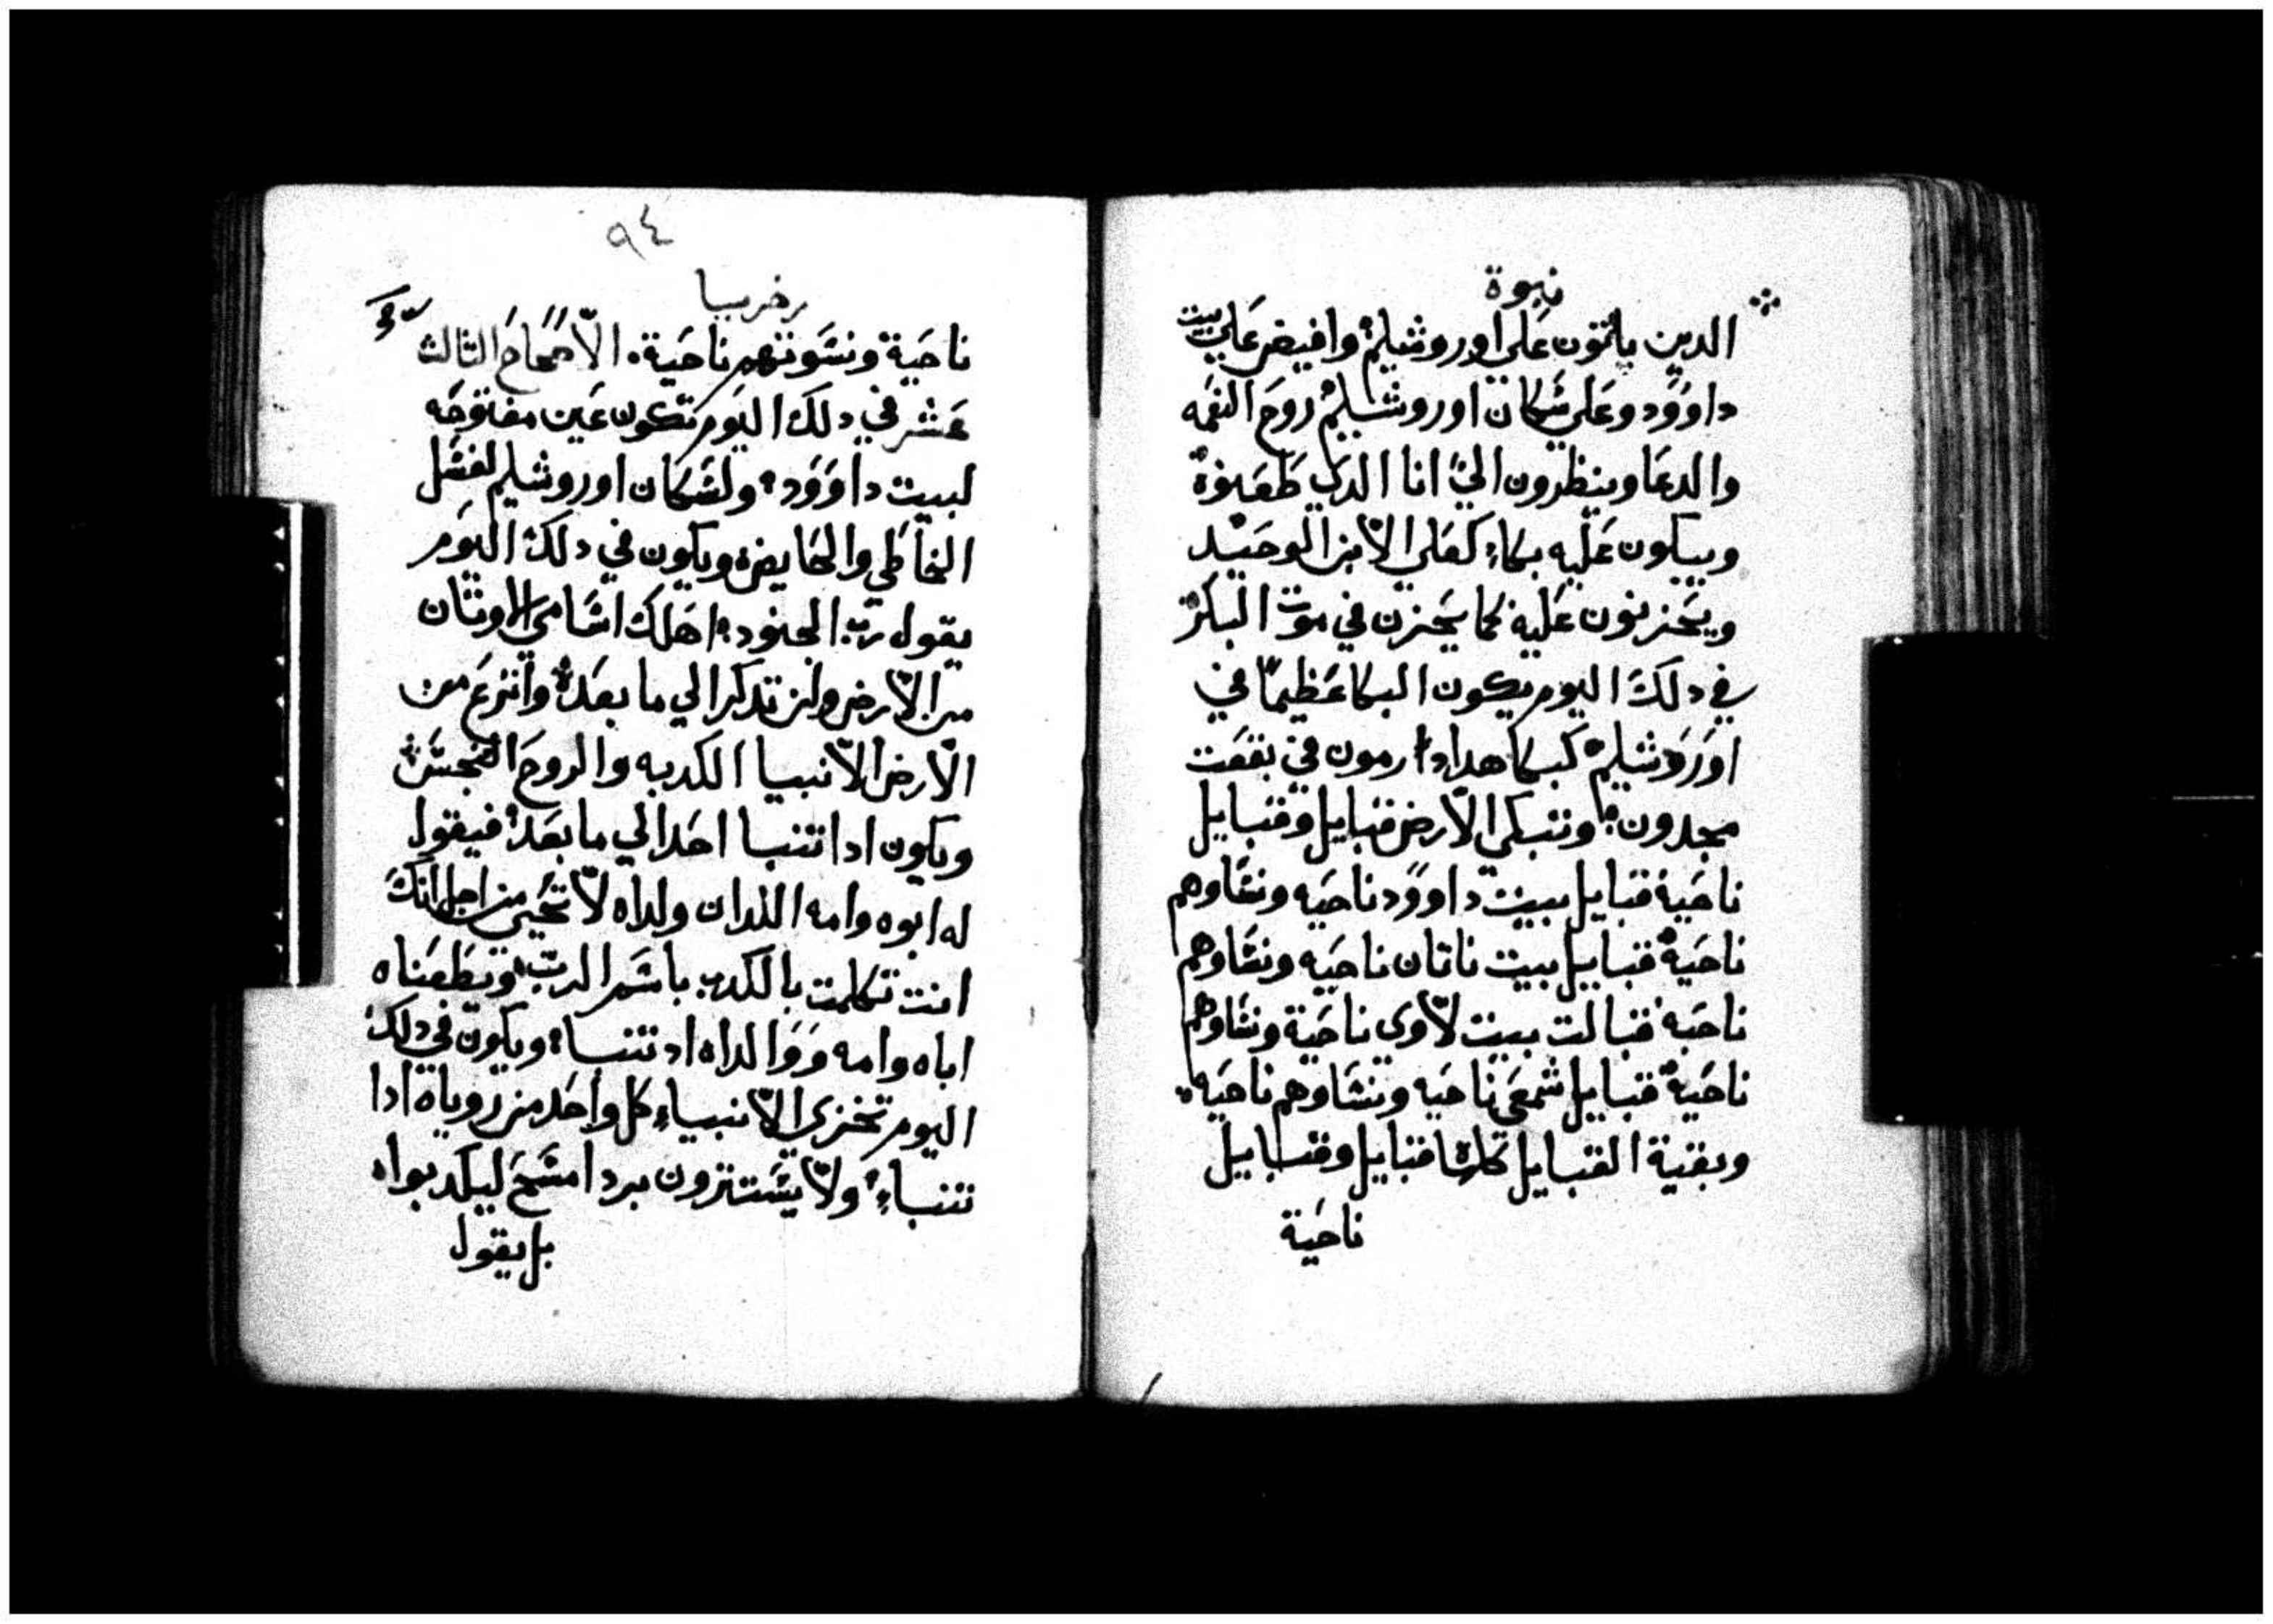 نبوة
الدين ياتون علي اوروشليم وافيض علي بيت
داوود وعلي سكان اوروشليم روح النعمه
والدعا وينظرون الي انا الدي طعنوة
ويبكون عليه بكاء كعلي الابن الوحيد
ويحزنون عليه كما يحزن في موت البكر
في دلك اليوم يكون البكا عظيما في
اوروشليم كبكا هداد ارمون في بقعت
مجدون وتبكي الارض قبايل وقبايل
ناحية قبايل بيت داوود ناحيه ونساوهم
ناحية قبايل بيت ناتان ناحيه ونساوهم
ناحية قبالت بيت لاوي ناحية ونساوهم
ناحية قبايل شمعي ناحيه ونساوهم ناحيه
وبقية القبايل كلها قبايل وقبايل
ناحية
٩٤
زخريا
ناحية ونسوتهم ناحية الاصحاح الثالث
عشر في دلك اليوم تكون عين مفتوحه
لبيت داوود ولسكان اوروشليم لغسل
الخاطي والحايض ويكون في دلك اليوم
يقول رب الجنود اهلك اسامي الاوتان
من الارض ولن تدكر الي ما بعد وانزع من
الارض الانبيا الكدبه والروح النجس
ويكون ادا تنبا احد الي ما بعد فيقول
له ابوه وامه اللدان ولداه لا تحيي من اجل انك
انت تكلمت بالكدب باسم الرب ويطعناه
اباه وامه ووالداه اد تنبا ويكون في دلك
اليوم تخزي الانبياء كل واحد من روياه ادا
تنباء ولا يستترون بردا مسح ليكدبوا
بل يقول